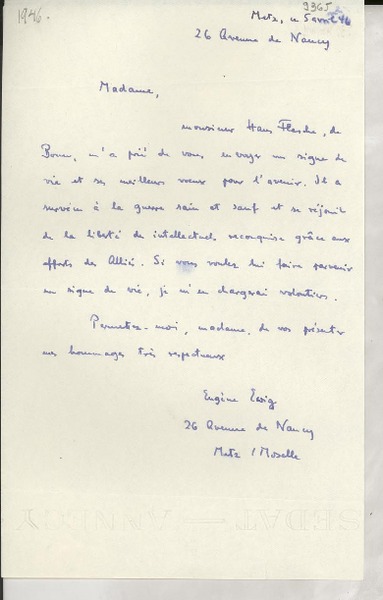 1946.
9365
Metz, le 5 avril 46
26 Avenue de Nancy
Madame,
monsieur Hans Flesche, de
Bonn, m'a prié de vous envoyer un signe de
vie et ses meilleurs vœux pour l'avenir. Il a
survécu à la guerre sain et sauf et se réjouit
de la liberté de intellectuels reconquise grâce aux
efforts des Alliés. Si vous voulez lui faire parvenir
un signe de vie, je m'en chargerai volontiers.
Permettez-moi, madame, de vos présenter
mes hommages très respectueux
Eugène Ewig
26 Avenue de Nancy
Metz / Moselle
SEDAT — ANNECY